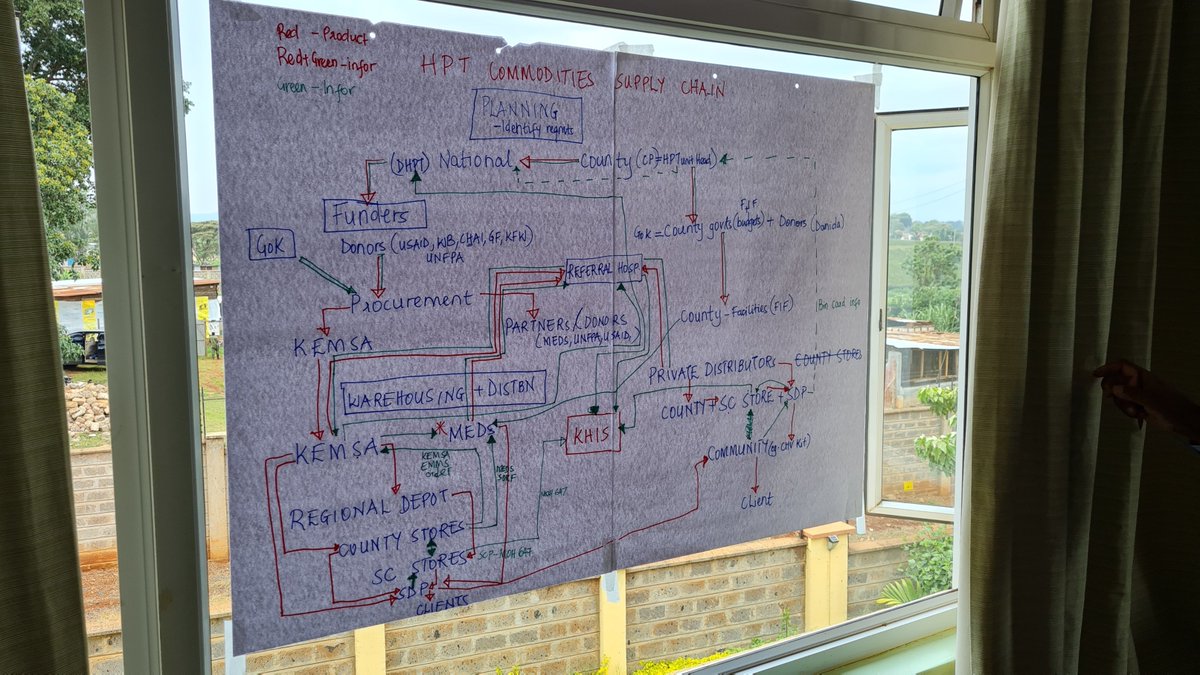 Red - Product
Red+Green-infor
Green - Infor
HPT COMMODITIES SUPPLY CHAIN
PLANNING
-Identify reqmts
(DHPT) National
County (CP=HPT unit Head)
Funders
FIF
GOK = County govts (budgets) + Donors (Danida)
GOK
Donors (USAID, WB, CHAI, GF, KFW,
UNFPA
REFERRAL HOSP
Procurement
PARTNERS (DONORS
(MEDS, UNFPA, USAID,
County - Facilities (FIF)
Bin card info
KEMSA
PRIVATE DISTRIBUTORS - COUNTY STORES
WAREHOUSING + DISTBN
COUNTY + SC STORE + SDP
MEDS
KHIS
KEMSA
KEMSA
EMMS
order
MEDS
SORF
COMMUNITY (eg. CHV Kit)
MOH 647
REGIONAL DEPOT
Client
COUNTY STORES
SC STORES
SCP-MOH 647
SDP
CLIENTS